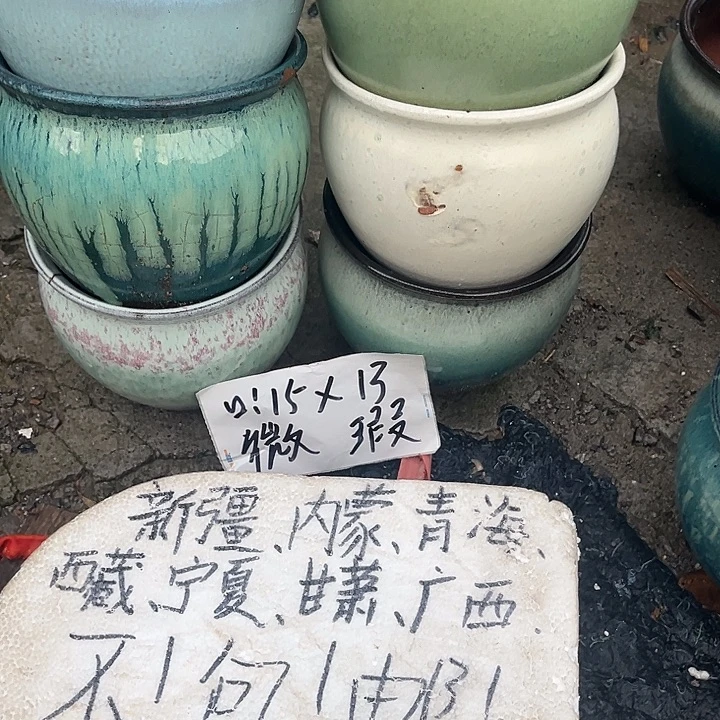 口:15×13
微 瑕
新疆、内蒙、青海、
西藏、宁夏、甘萧、广西.
不!包!邮!